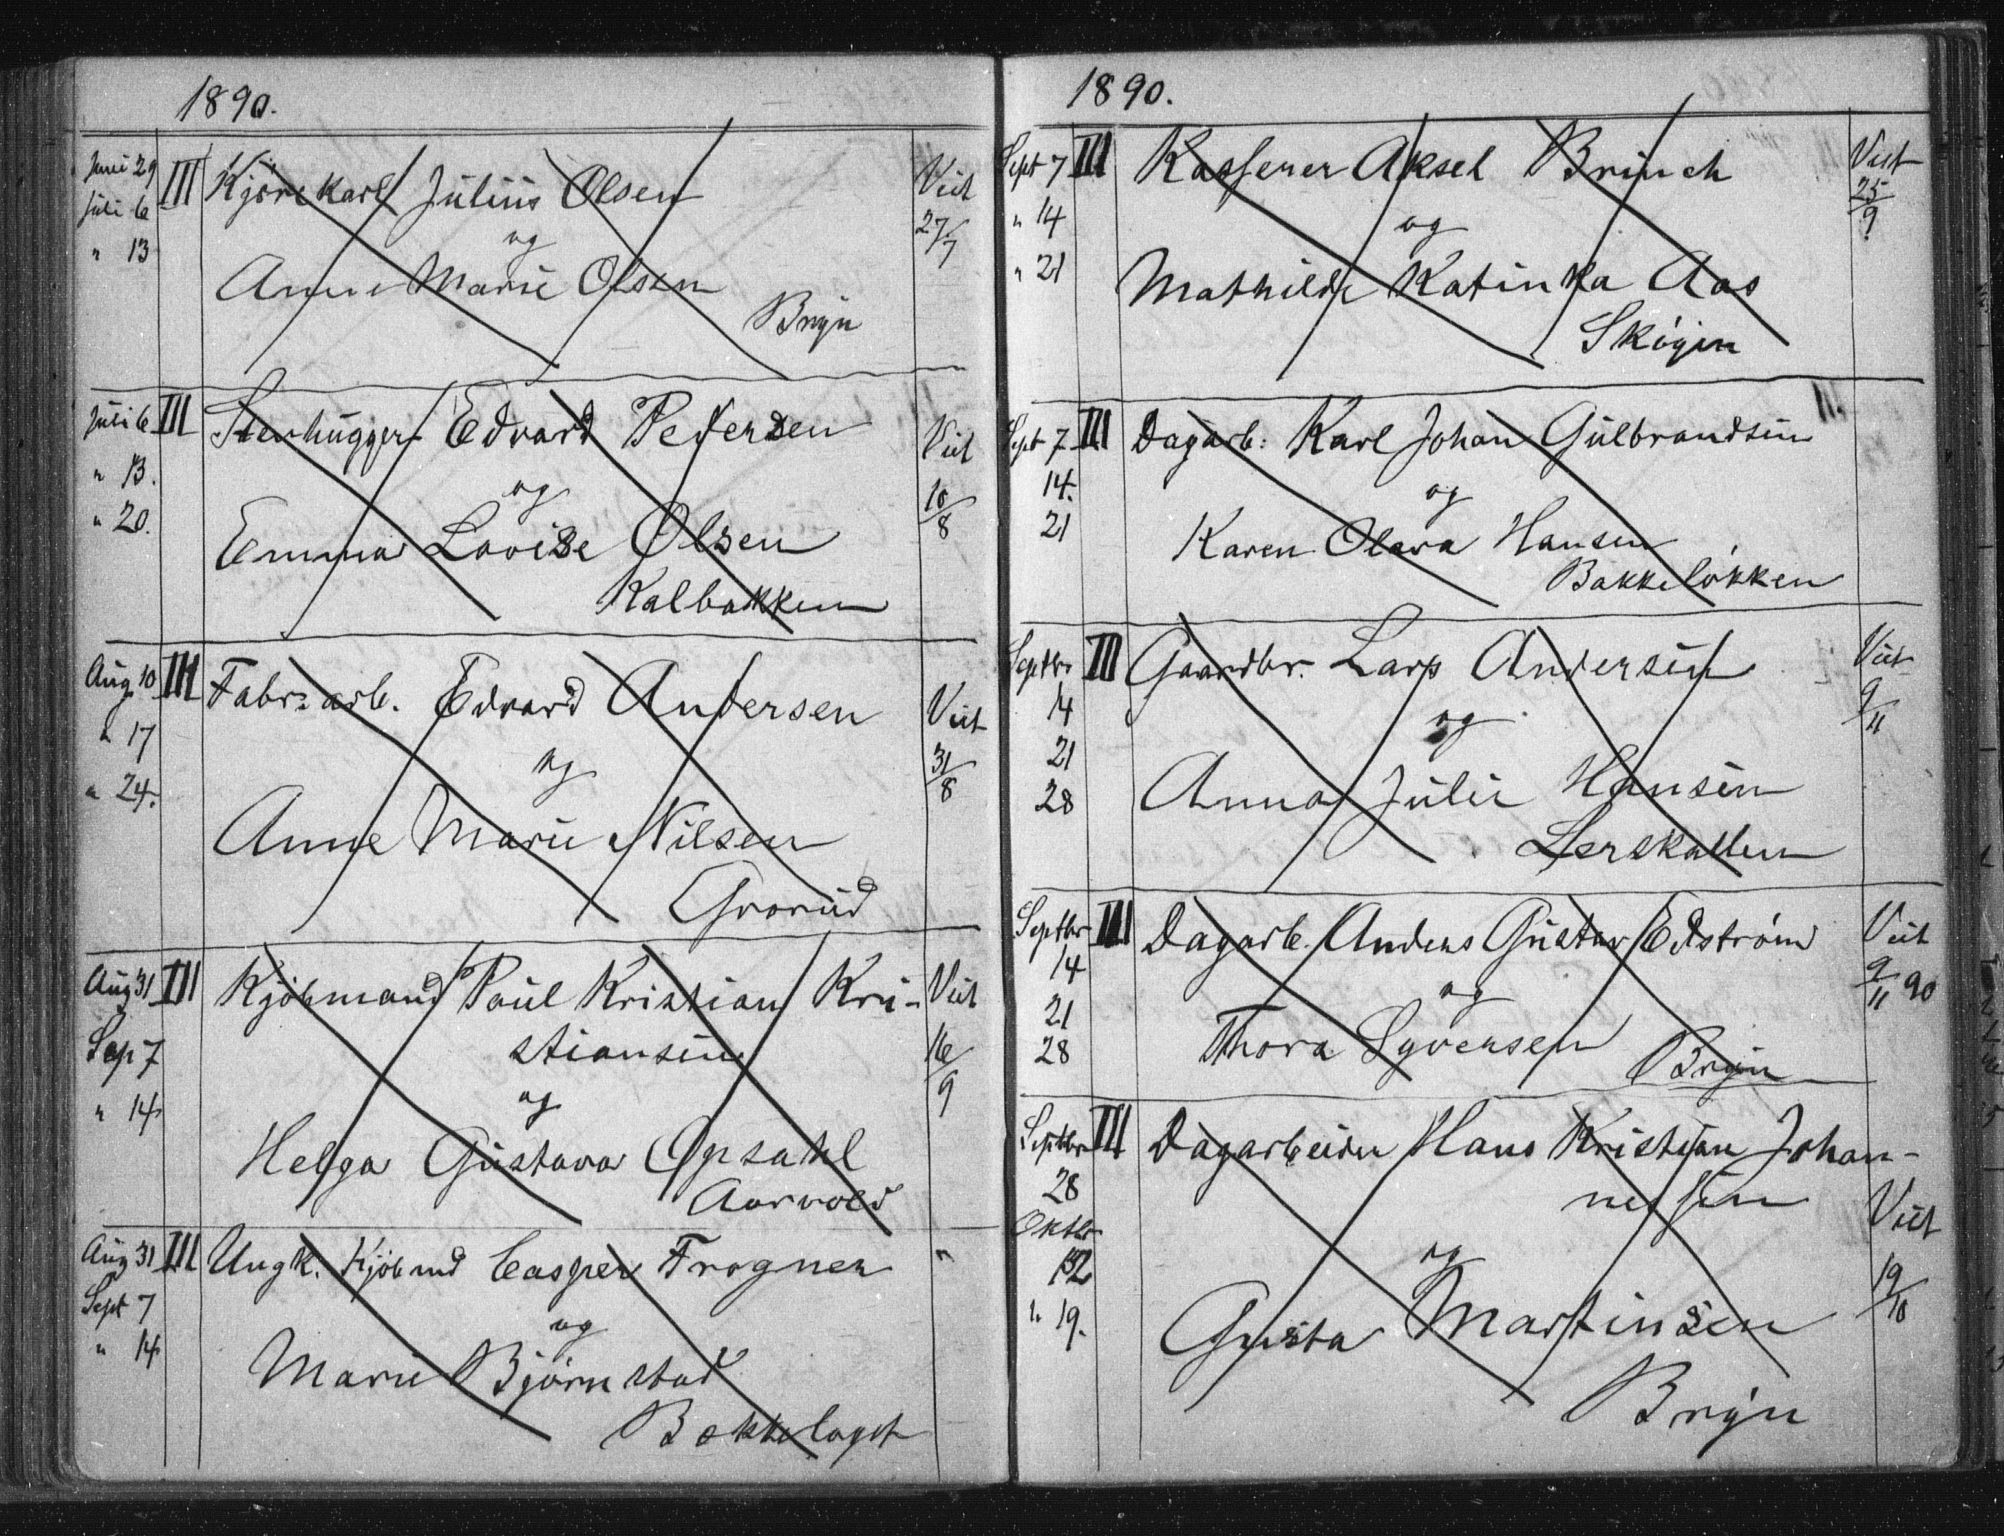 1890.
Juni 29 III Kjörekarl Julius Olsen Viet
Juli 6 27/7
" 13 og
Anne Marie Olsen
Bryn
Juli 6 III Stenhugger Edvard Pedersen Viet
" 13. og 10/8
" 20. Emma Lovise Olsen
Kalbakken
Aug 10 III Fabr: arb. Edvard Andersen Viet
" 17 og 31/8
" 24. Anne Marie Nilsen
Grorud
Aug 31 III Kjöbmand Paul Kristian Kri- Viet
Sep 7 stiansen 16/9
" 14 og
Helga Gustava Opsahl
Aarvold
Aug 31 III Ungk. Kjöbmd Casper Frogner "
Sept 7 og
" 14 Marie Bjørnstad
Bækkelaget
1890.
Sept 7 III Kasserer Aksel Brinch Viet
" 14 og 25/9
" 21 Mathilde Katinka Aas
Skøyen
Sept 7 III Dagarb: Karl Johan Gulbrandsen
14. og
21 Karen Olava Hansen
Bakkeløkken
Septbr III Gaardbr. Lars Andersen Viet
14 og 9/11
21
28 Anna Julie Hansen
Lerskallen
Septbr III Dagarb. Anders Gustav Edström Viet
14 og 9/11 90
21
28 Thora Syversen
Bryn
Septbr III Dagarbeider Hans Kristian Johan-
28 nessen Viet
Oktbr
12 og 19/10
" 19. Gusta Martinsen
Bryn